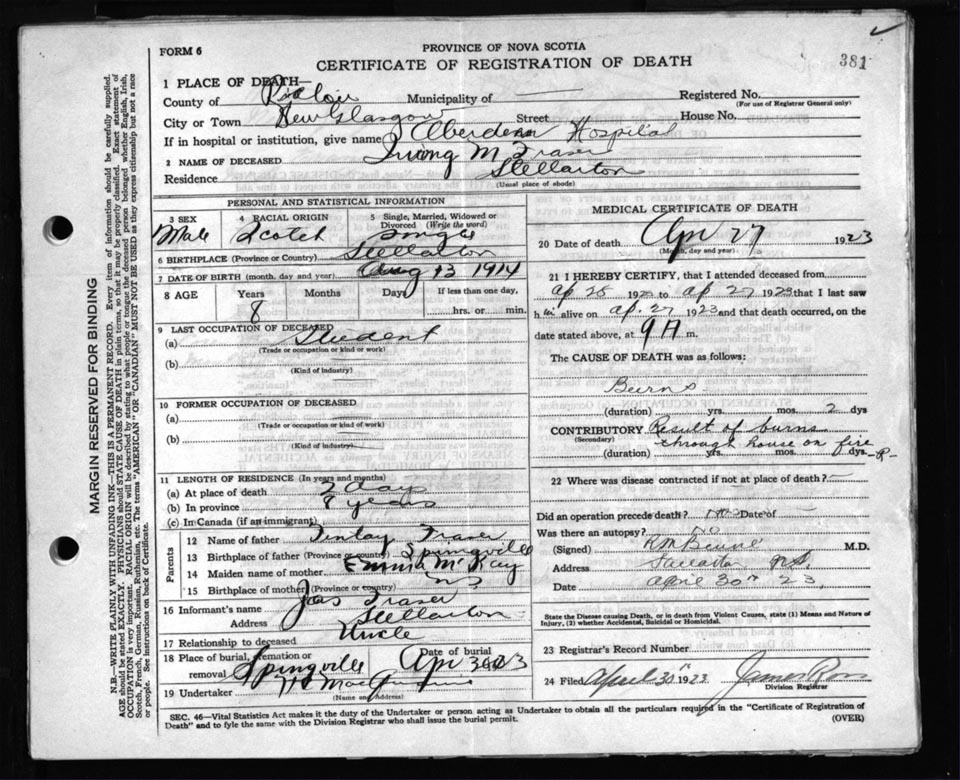 FORM 6
PROVINCE OF NOVA SCOTIA
CERTIFICATE OF REGISTRATION OF DEATH
381
1 PLACE OF DEATH—
County of Pictou Municipality of — Registered No.
(For use of Registrar General only)
City or Town New Glasgow Street House No.
If in hospital or institution, give name Aberdeen Hospital
2 NAME OF DECEASED Irving M Fraser
Residence Stellarton
(Usual place of abode)
PERSONAL AND STATISTICAL INFORMATION
3 SEX 4 RACIAL ORIGIN 5 Single, Married, Widowed or Divorced (Write the word)
Male Scotch Single
6 BIRTHPLACE (Province or Country) Stellarton
7 DATE OF BIRTH (month, day and year) Aug 13 1914
8 AGE Years Months Days If less than one day,
8 hrs. or min.
9 LAST OCCUPATION OF DECEASED
(a) Student
(Trade or occupation or kind or work)
(b)
(Kind of industry)
10 FORMER OCCUPATION OF DECEASED
(a)
(Trade or occupation or kind of work)
(b)
(Kind of industry)
11 LENGTH OF RESIDENCE (In years and months)
(a) At place of death 2 days
(b) In province 8 years
(c) In Canada (if an immigrant)
Parents
12 Name of father Finlay Fraser
13 Birthplace of father (Province or country) Springville
14 Maiden name of mother Emma McKay
15 Birthplace of mother (Province or country) NS
16 Informant's name Jas Fraser
Address Stellarton
17 Relationship to deceased Uncle
18 Place of burial, cremation or removal Springville Date of burial Apr 30 1923
19 Undertaker
(Name and Address)
MEDICAL CERTIFICATE OF DEATH
20 Date of death Apr 27 1923
(Month, day and year)
21 I HEREBY CERTIFY, that I attended deceased from
Ap 25 1923 to Ap 27 1923 that I last saw
him alive on Ap. 27 1923 and that death occurred, on the
date stated above, at 9 A m.
The CAUSE OF DEATH was as follows:
Burns
(duration) yrs. mos. 2 dys
CONTRIBUTORY Result of burns
(Secondary) through house on fire
(duration) yrs. mos. dys.
22 Where was disease contracted if not at place of death? —
Did an operation precede death? no Date of —
Was there an autopsy? no
(Signed) M.D.
Address Stellarton N.S.
Date April 30th 23
State the Disease causing Death, or in death from Violent Causes, state (1) Means and Nature of Injury, (2) whether Accidental, Suicidal or Homicidal.
23 Registrar's Record Number
24 Filed April 30th 1923 James Ross
Division Registrar
SEC. 46—Vital Statistics Act makes it the duty of the Undertaker or person acting as Undertaker to obtain all the particulars required in the "Certificate of Registration of
Death" and to fyle the same with the Division Registrar who shall issue the burial permit.
(OVER)
MARGIN RESERVED FOR BINDING
N.B.—WRITE PLAINLY WITH UNFADING INK—THIS IS A PERMANENT RECORD. Every item of information should be carefully supplied.
AGE should be stated EXACTLY. PHYSICIANS should STATE CAUSE OF DEATH in plain terms, so that it may be properly classified. Exact statement of
OCCUPATION is very important. RACIAL ORIGIN will be described by stating to what people or tongue the deceased person belonged whether English, Irish,
Scotch, French, German, Russian, Ruthenian, etc. The terms "AMERICAN" OR "CANADIAN" MUST NOT BE USED as they express citizenship but not a race
or people. See instructions on back of Certificate.